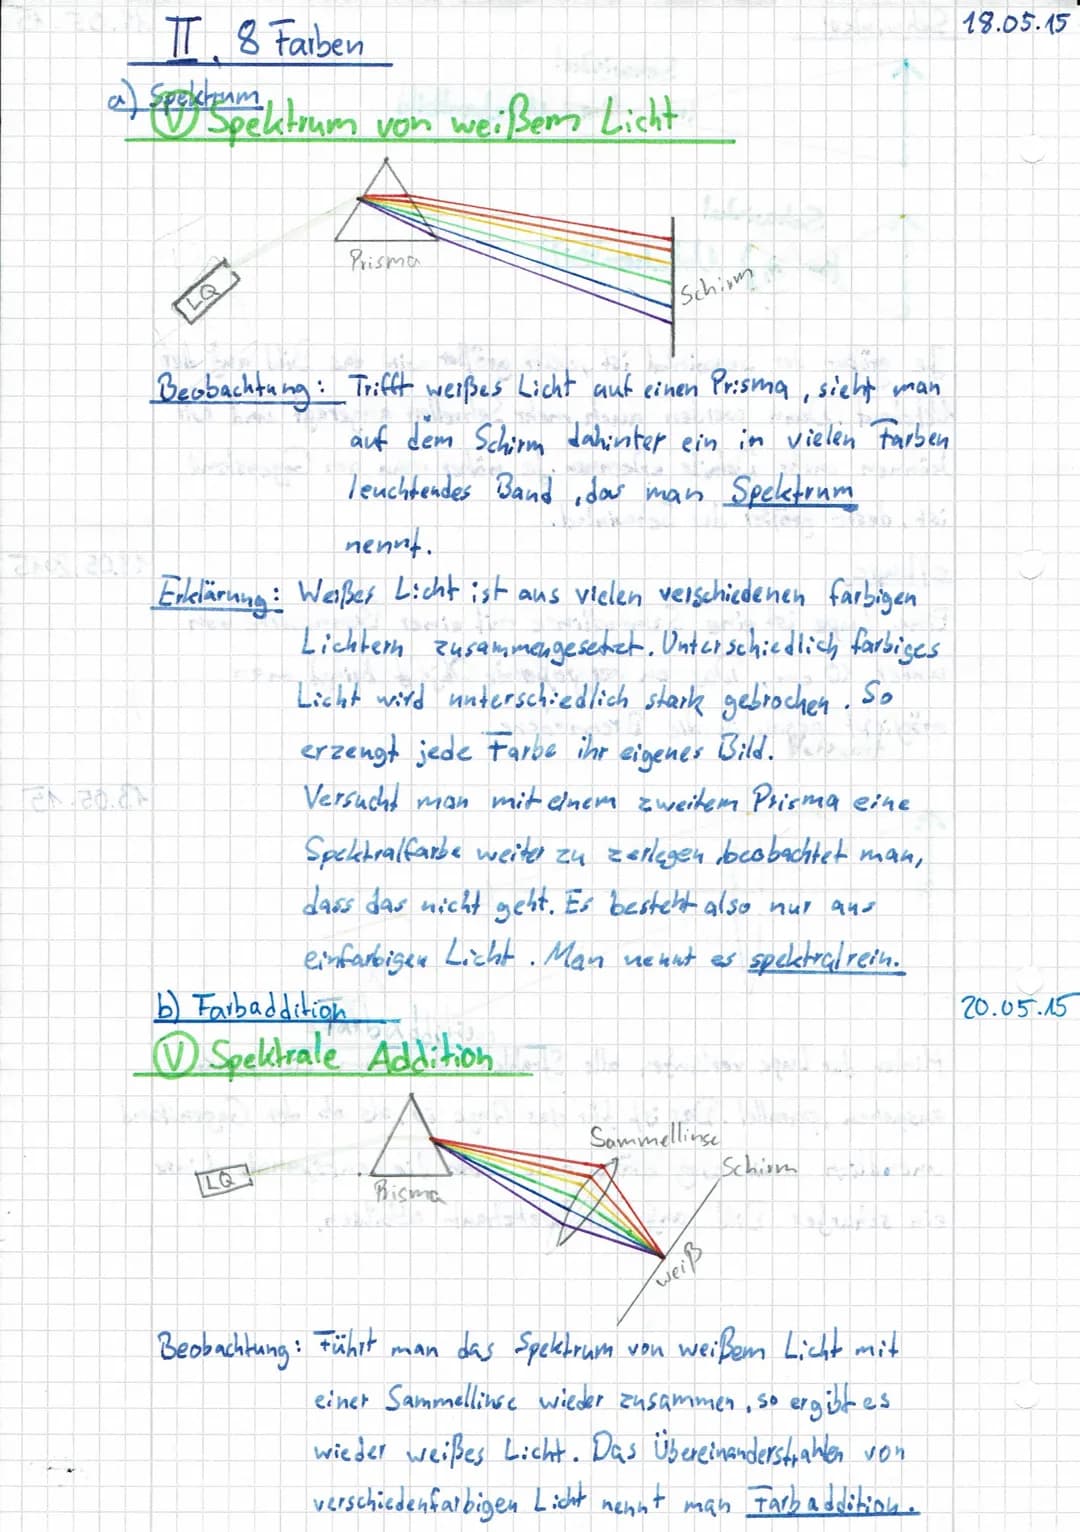 18.05.15
II. 8 Farben
a) Spektrum
V Spektrum von weißem Licht
Prisma
LQ
Schirm
Beobachtung: Trifft weißes Licht auf einen Prisma, sieht man
auf dem Schirm dahinter ein in vielen Farben
leuchtendes Band, das man Spektrum
nennt.
Erklärung: Weißes Licht ist aus vielen verschiedenen farbigen
Lichtern zusammengesetzt. Unterschiedlich farbiges
Licht wird unterschiedlich stark gebrochen. So
erzeugt jede Farbe ihr eigenes Bild.
Versucht man mit einem zweitem Prisma eine
Spektralfarbe weiter zu zerlegen, beobachtet man,
dass das nicht geht. Es besteht also nur aus
einfarbigen Licht. Man nennt es spektralrein.
b) Farbaddition
20.05.15
V Spektrale Addition
Sammellinse
Schirm
LQ
Prisma
weiß
Beobachtung: Führt man das Spektrum von weißem Licht mit
einer Sammellinse wieder zusammen, so ergibt es
wieder weißes Licht. Das Übereinanderstrahlen von
verschiedenfarbigen Licht nennt man Farbaddition.